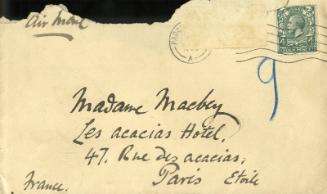 Air Mail
9
Madame Macbey
Les acacias Hotel,
47. Rue des acacias,
Paris Etoile
France.